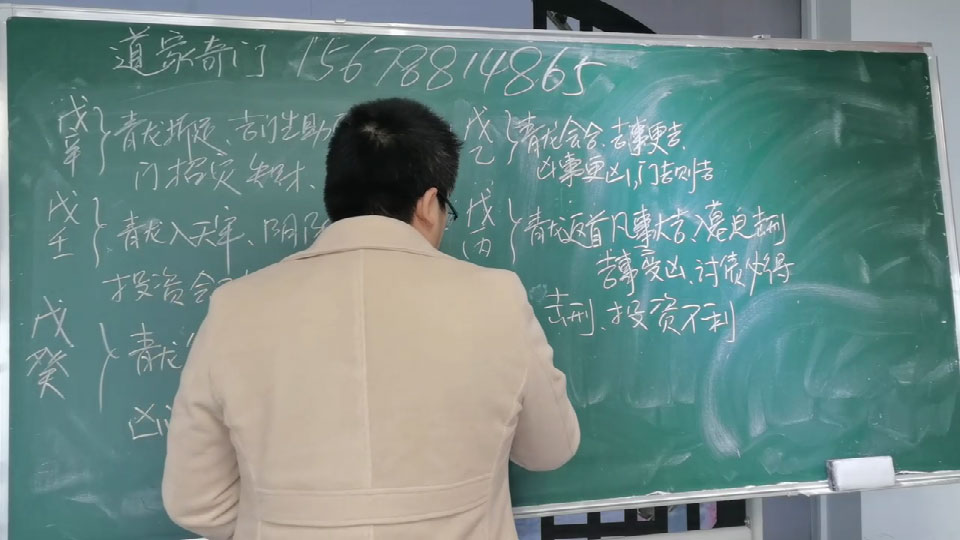 道家奇门 15678814865
戊辛 青龙折足、吉门生助
门招灾失财、
戊壬 青龙入天牢、阴阳
投资会
戊癸 青龙
凶
戊乙 青龙会合、吉事更吉、
凶事更凶,门吉则吉
戊丙 青龙返首凡事大吉、入墓足击刑
吉事变凶、讨债必得
击刑、投资不利